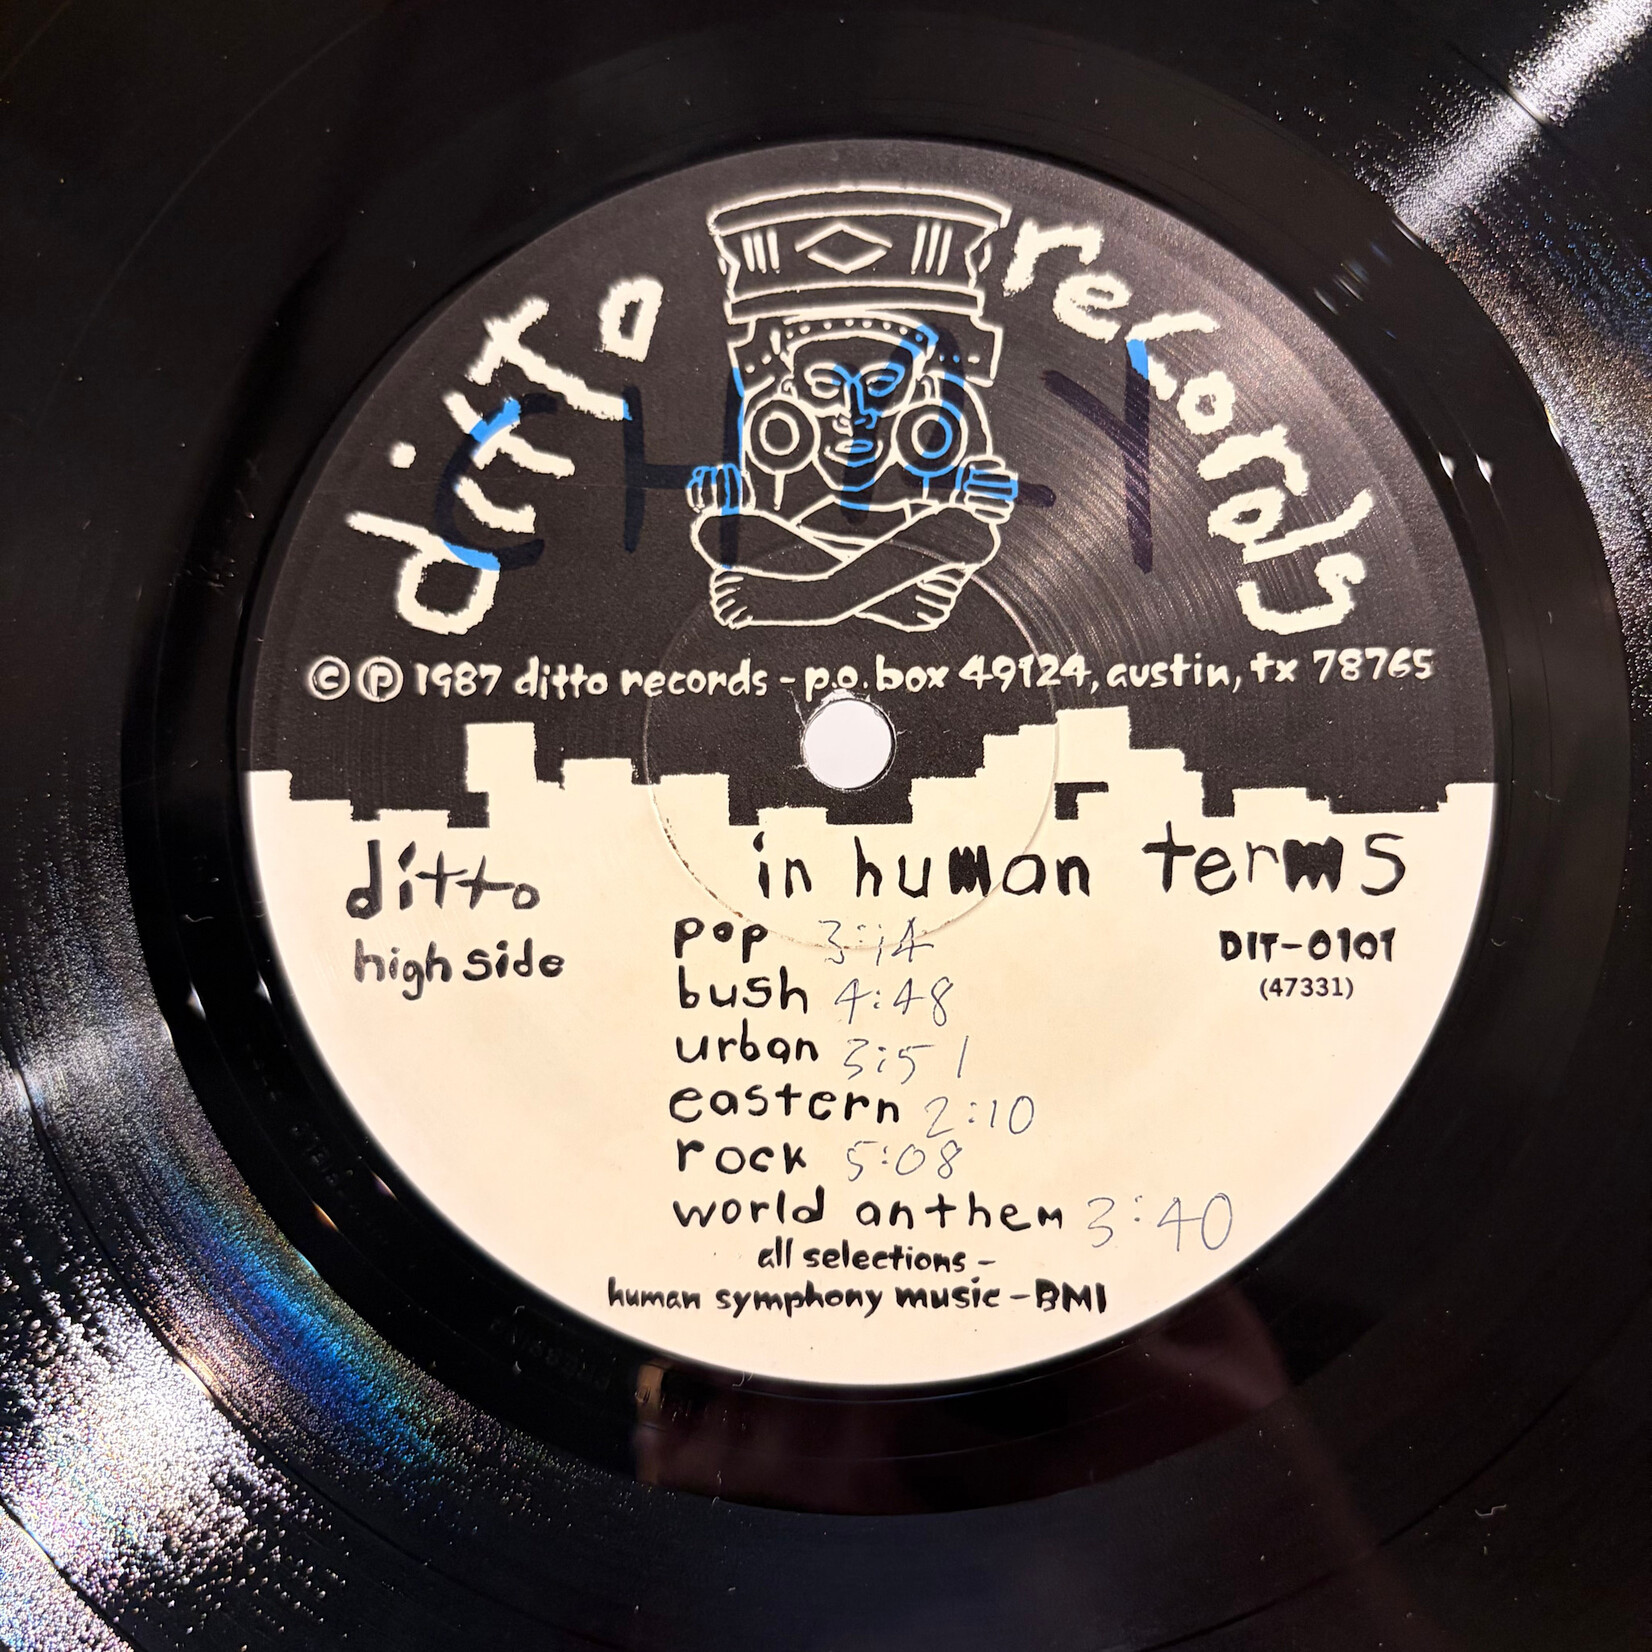 ditto records
CHAY
©℗ 1987 ditto records - p.o. box 49124, austin, tx 78765
ditto
high side
in human terms
DIT-0101
(47331)
pop 3:14
bush 4:48
urban 3:51
eastern 2:10
rock 5:08
world anthem 3:40
all selections -
human symphony music - BMI